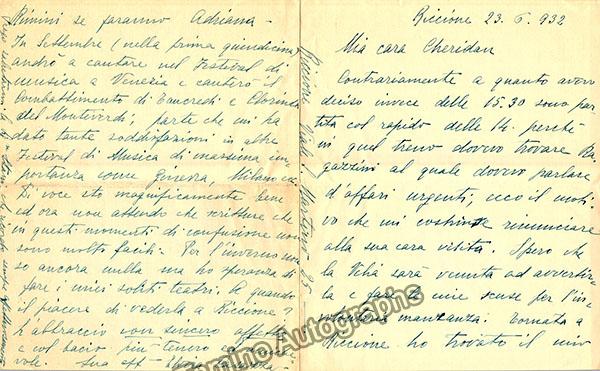 Riccione 23. 6. 932
Mia cara Cheridan
Contrariamente a quanto avevo
deciso invece delle 15.30 sono par
tita col rapido delle 14. perchè
in quel treno dovevo trovare Ra
gazzini al quale dovevo parlare
d'affari urgenti, ecco il moti
vo che mi costrinse rinunciare
alla sua cara visita. Spero che
la Velia sarà venuta ad avvertir
la e fare le mie scuse per l'in
volontaria mancanza. Tornata a
Riccione ho trovato il mio
Rimini se faranno Adriana -
In Settembre (nella prima quindicina)
andrò a cantare nel Festival di
musica a Venezia e canterò il
Combattimento di Tancredi e Clorinda
del Monteverdi; parte che mi ha
dato tante soddisfazioni in altre
Festival di Musica di massima im
portanza come Ginevra, Milano ecc
Di voce sto magnificamente bene
ed ora non attendo che scritture che
in questi momenti di confusione non
sono molto facili. Per l'inverno non
so ancora nulla ma ho speranza di
fare i miei soliti teatri. E quando
il piacere di vederla a Riccione?
L'abbraccio con sincero affetto
e col bacio più tenero ed
vole. Sua aff
Riccione Viale Martini 25
Tamino Autographs